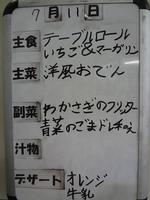 7月11日
主食 テーブルロール
いちご&マーガリン
主菜 洋風おでん
副菜 わかさぎのフリッター
青菜のごまドレ和え
汁物
デザート オレンジ
牛乳